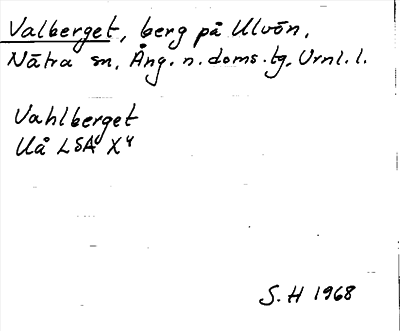 Valberget, berg på Ulvön,
Nätra sn, Ång. n. doms.tg, Urnl. l.
Vahlberget
Uå LSA X4
S. H 1968